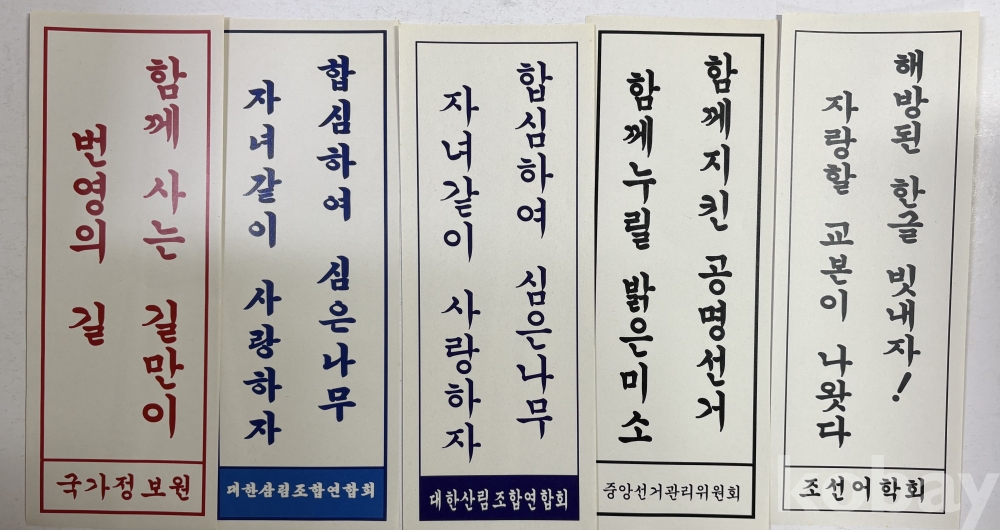 함께 사는 길만이
번영의 길
국가정보원
합심하여 심은나무
자녀같이 사랑하자
대한산림조합연합회
합심하여 심은나무
자녀같이 사랑하자
대한산림조합연합회
함께지킨 공명선거
함께누릴 밝은미소
중앙선거관리위원회
해방된 한글 빗내자!
자랑할 교본이 나왓다
조선어학회
kobay